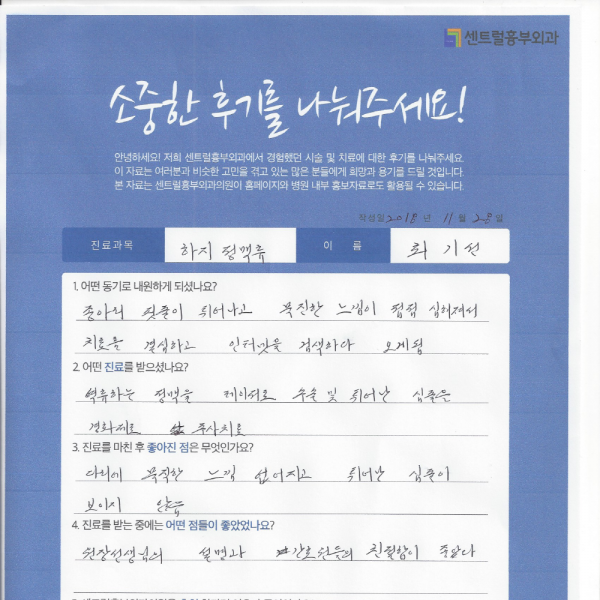 센트럴흉부외과
소중한 후기를 나눠주세요!
안녕하세요! 저희 센트럴흉부외과에서 경험했던 시술 및 치료에 대한 후기를 나눠주세요.
이 자료는 여러분과 비슷한 고민을 겪고 있는 많은 분들에게 희망과 용기를 드릴 것입니다.
본 자료는 센트럴흉부외과의원이 홈페이지와 병원 내부 홍보자료로도 활용될 수 있습니다.
작성일 2018 년 11 월 28 일
진료과목 하지 정맥류 이 름 기선
1. 어떤 동기로 내원하게 되셨나요?
종아리 핏줄이 튀어나고 묵직한 느낌이 점점 심해져서
치료를 결심하고 인터넷을 검색하다 오게됨
2. 어떤 진료를 받으셨나요?
역류하는 정맥을 레이저로 수술 및 튀어난 심줄은
경화제로 주사치료
3. 진료를 마친 후 좋아진 점은 무엇인가요?
다리에 묵직한 느낌 없어지고 튀어난 심줄이
보이지 않음
4. 진료를 받는 중에는 어떤 점들이 좋았었나요?
원장선생님의 설명과 간호사분들의 친절함이 좋았다